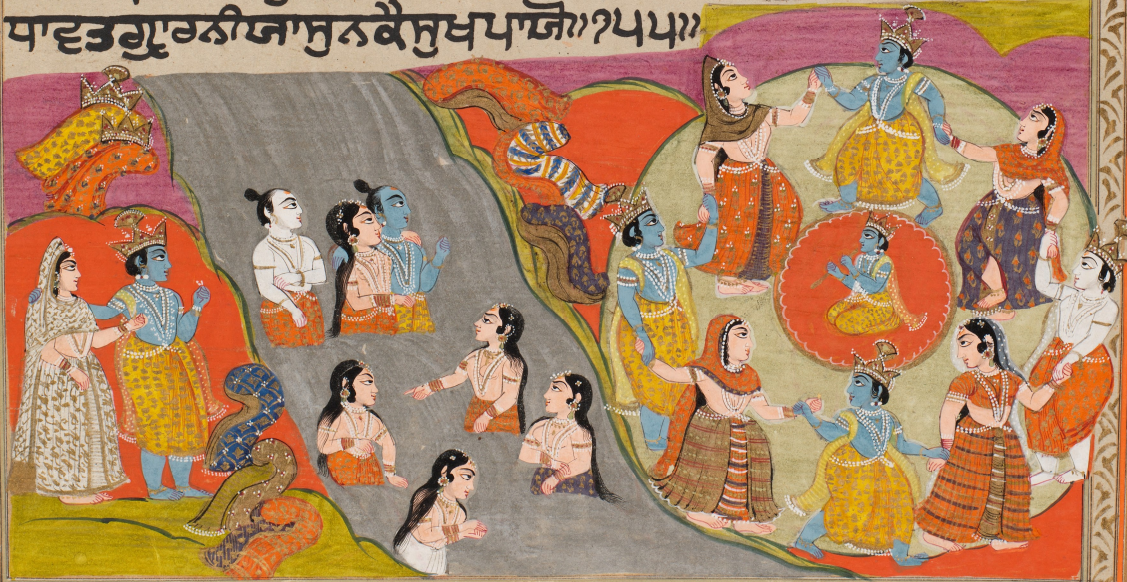 ਧਾਵਤਗ੍ਵਾਰਨੀਯਾਸੁਨਕੈਸੁਖਪਾਯੋ॥੭੫੫॥